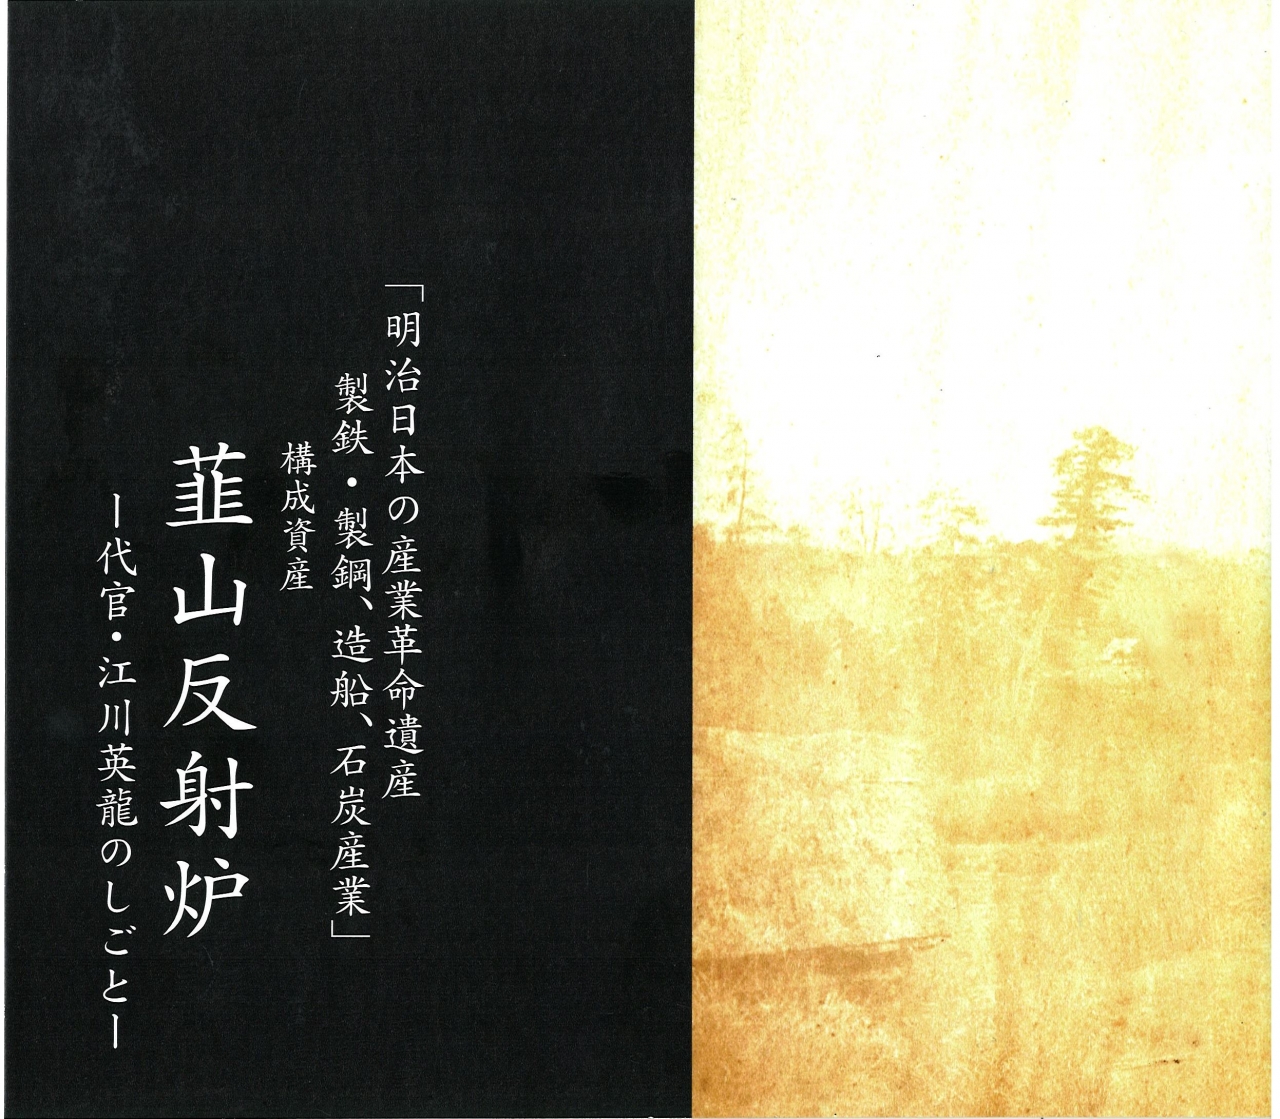 「明治日本の産業革命遺産
製鉄・製鋼、造船、石炭産業」
構成資産
韮山反射炉
ー代官・江川英龍のしごとー